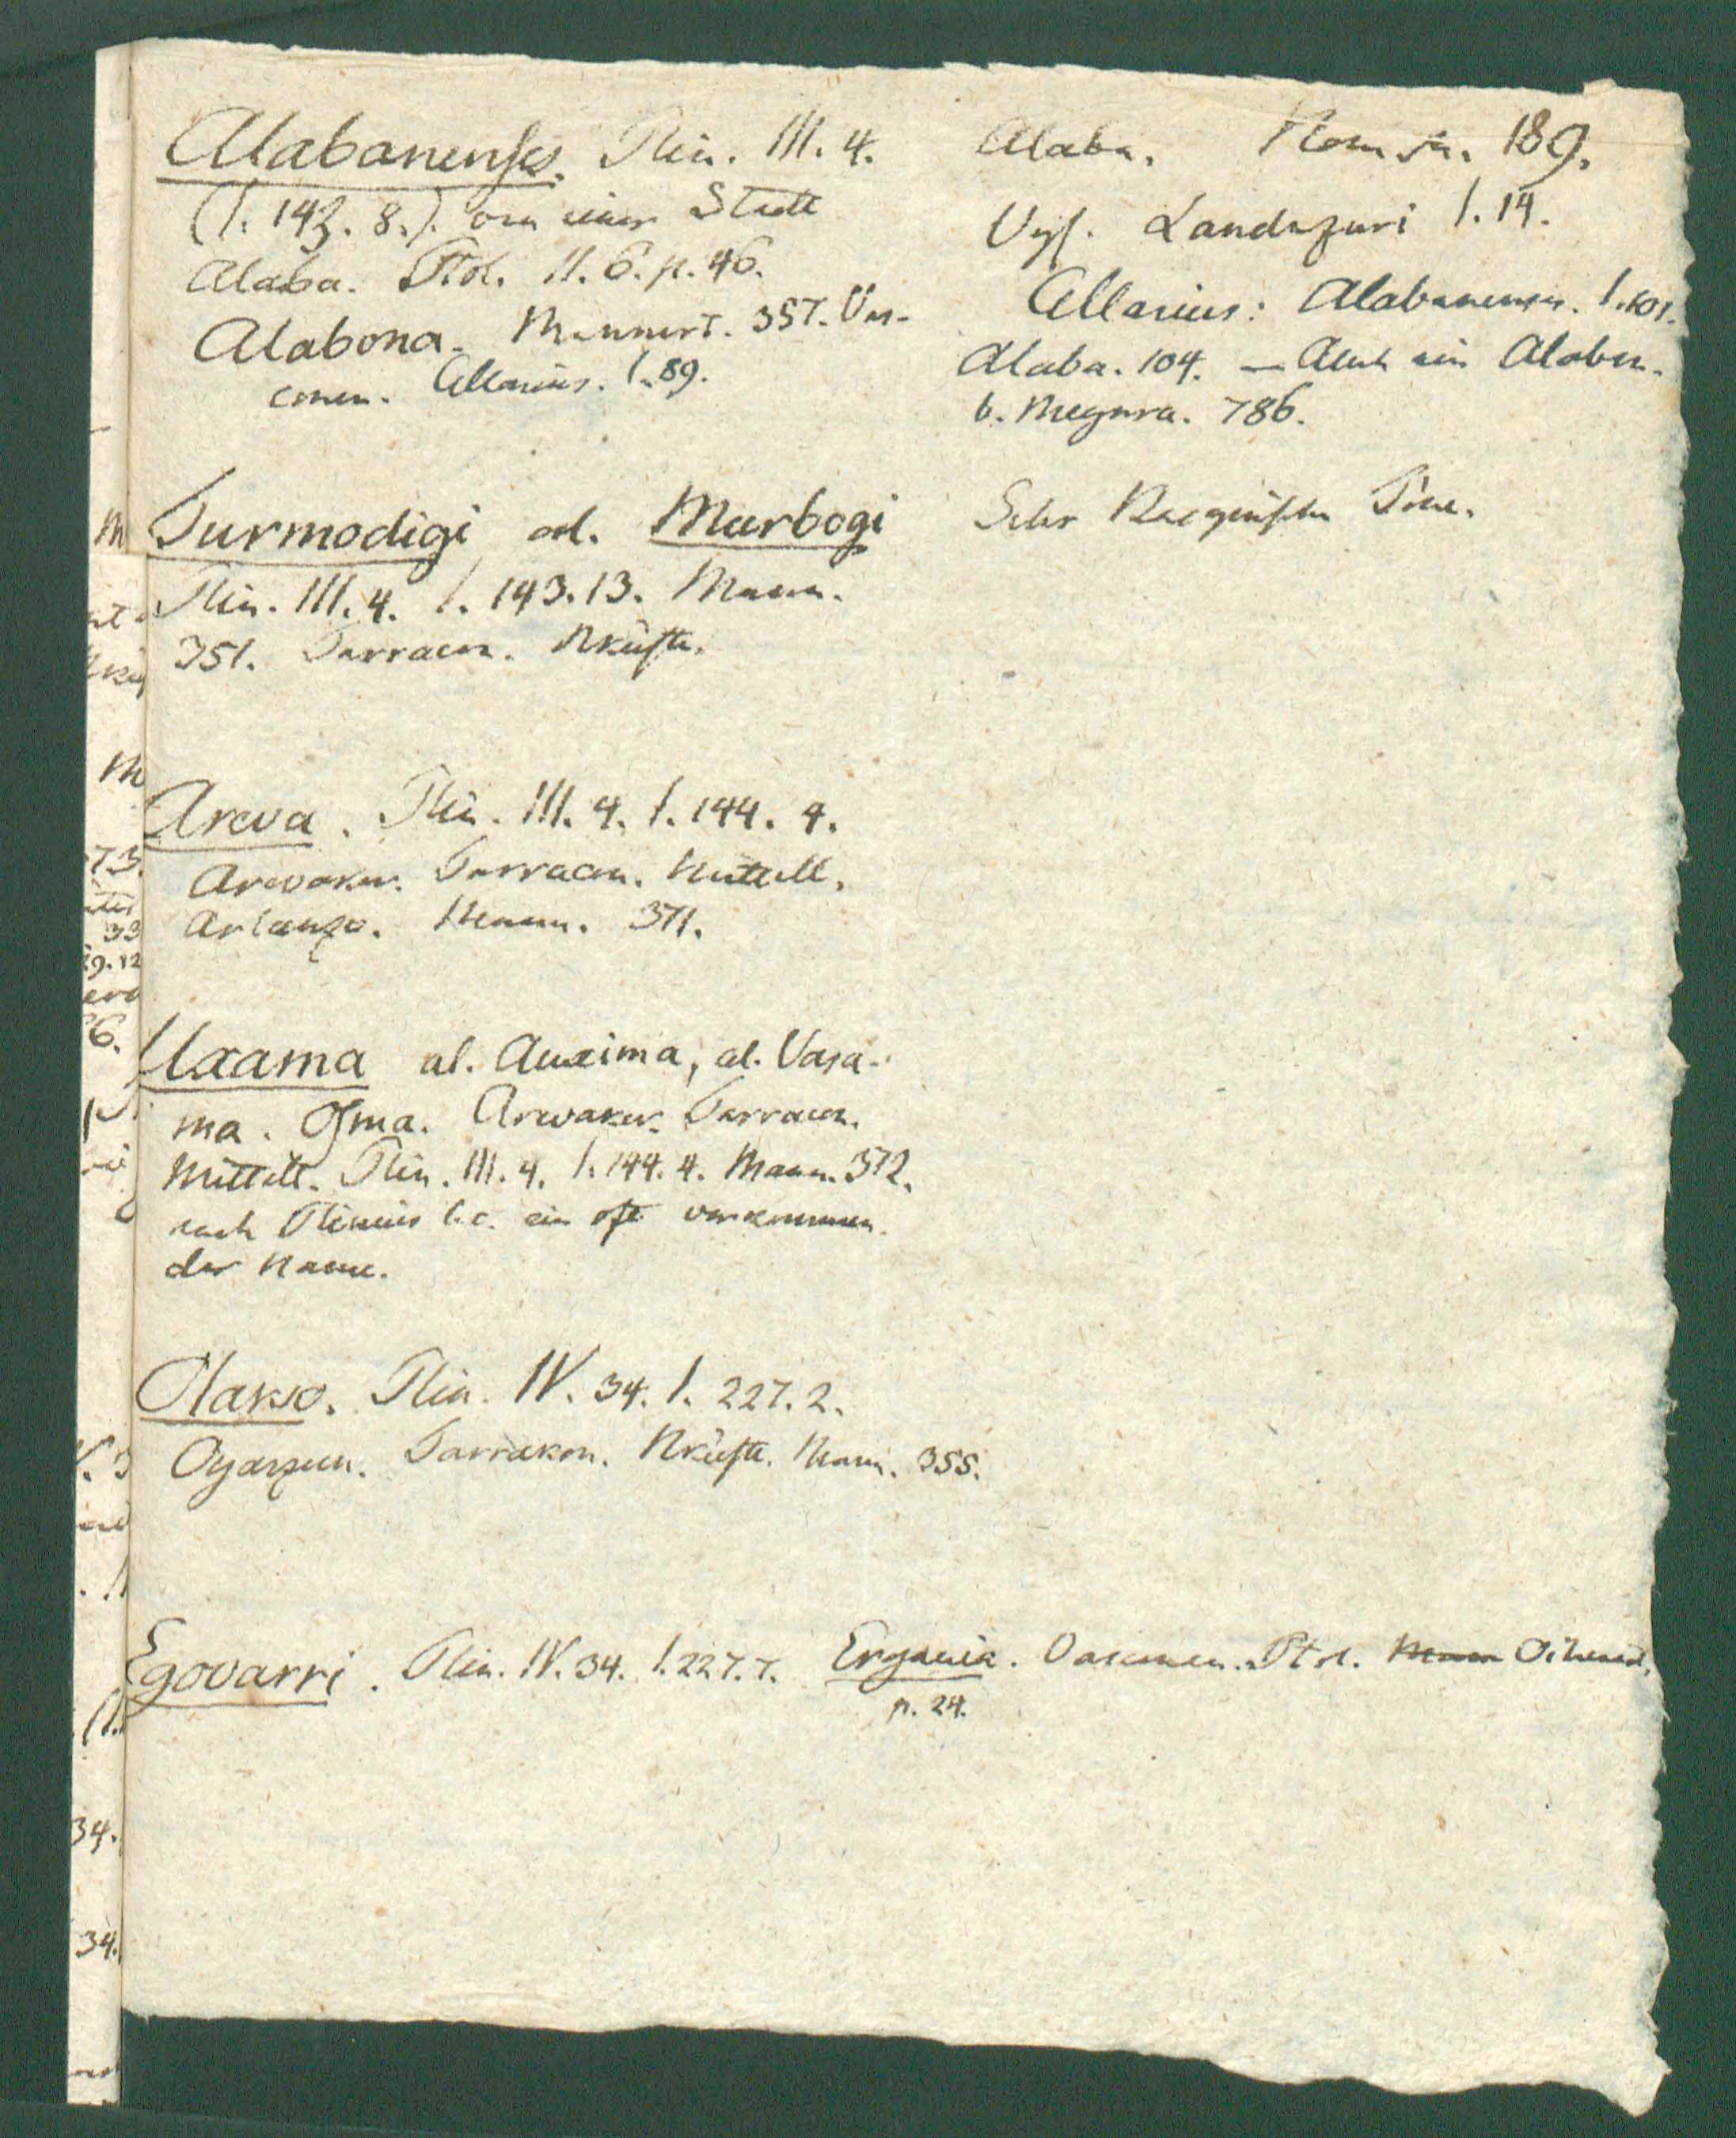 Alabanenses. Plin. III. 4.
(I. 143. 8.). von einer Stadt
Alaba. Ptol. II. 6. p. 46.
Alabona. Mannert. 357. Vas-
conen. Cellarius. I. 89.
Alaba. 189.
Vgl. Landazuri I. 14.
Cellarius: Alabanenses. I. 101.
Alaba. 104. — Auch ein Alaba.
b. Megara. 786.
Turmodigi al. Murbogi
Plin. III. 4. I. 143. 13. Mann.
351. Tarracon. NKüste.
Sehr Töne.
Areva. Plin. III. 4. I. 144. 4.
Arevaker. Tarracon. Mittell.
Arlanza. Mann. 371.
Uxama al. Auxima, al. Vasa-
ma. Osma. Arevaker. Tarracon.
Mittell. Plin. III. 4. I. 144. 4. Mann. 372.
nach Plinius l. c. ein oft vorkommen-
der Name.
Olarso. Plin. IV. 34. I. 227. 2.
Oyarzun. Tarrakon. NKüste. Mann. 355.
Egovarri. Plin. IV. 34. I. 227. 7. Ergavia. Vasconen. Ptol. Mann Oihenart.
p. 24.